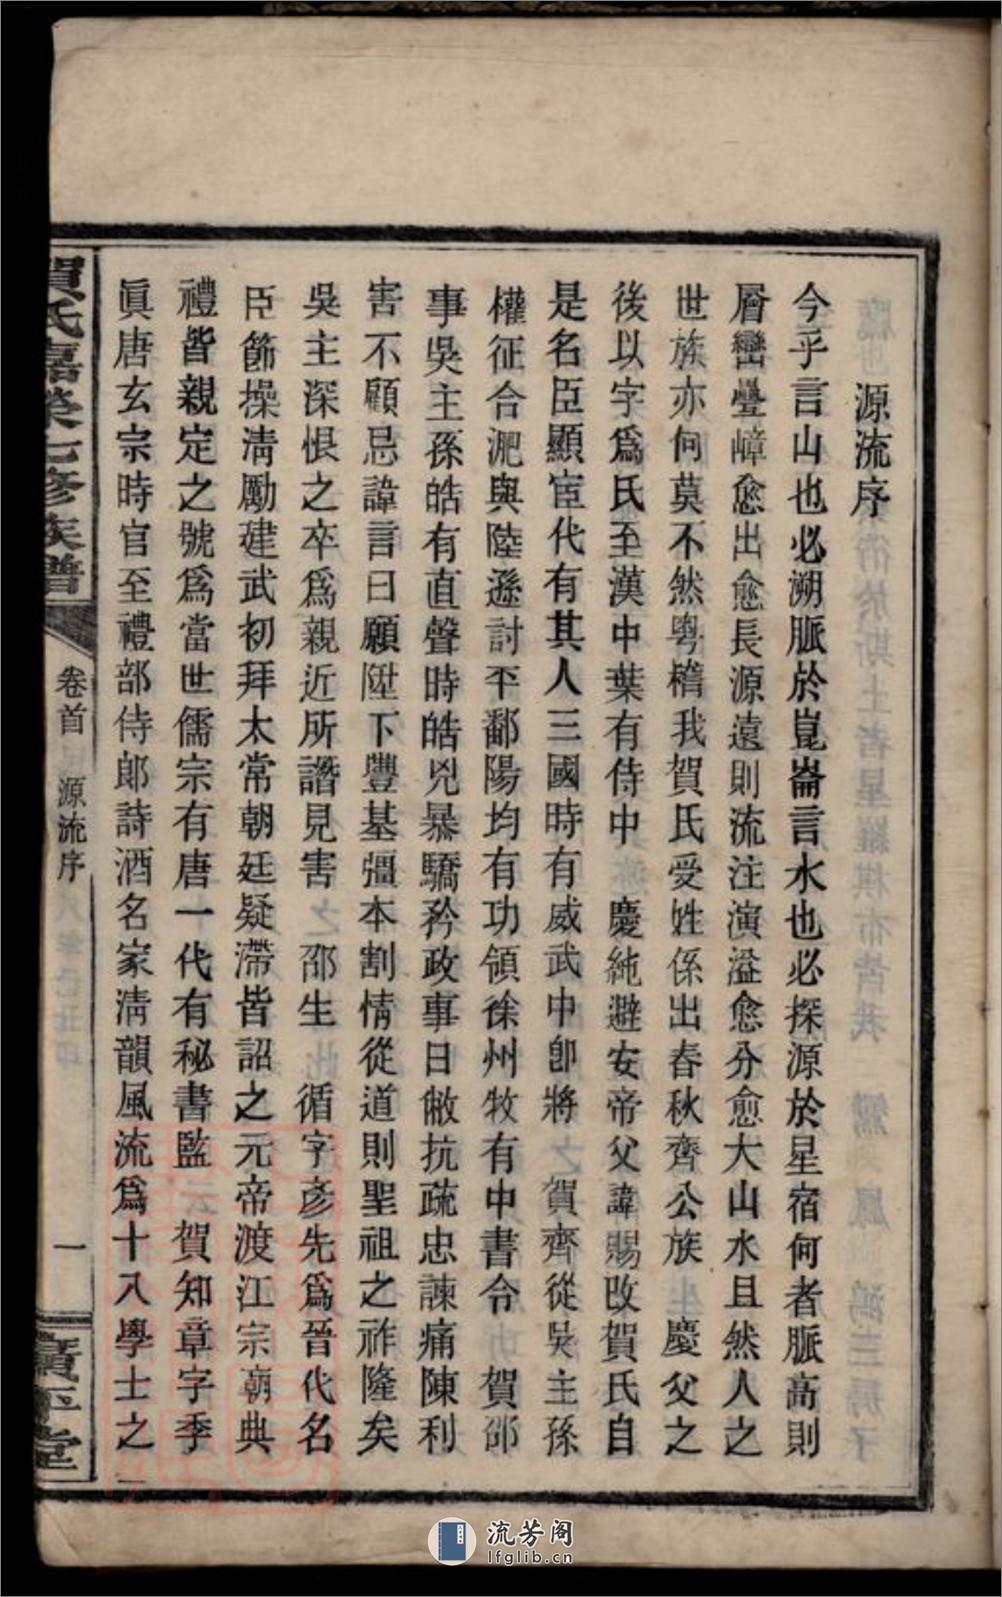 源流序
今乎言山也必溯脈於崑崙言水也必探源於星宿何者脈高則
層巒疊嶂愈出愈長源遠則流注演溢愈分愈大山水且然人之
世族亦何莫不然粵稽我賀氏受姓係出春秋齊公族 慶父之
後以字爲氏至漢中葉有侍中 慶純避安帝父諱賜改賀氏自
是名臣顯宦代有其人三國時有威武中郎將 賀齊從吳主孫
權征合淝與陸遜討平鄱陽均有功領徐州牧有中書令 賀邵
事吳主孫皓有直聲時皓兇暴驕矜政事日敝抗疏忠諫痛陳利
害不顧忌諱言曰願陞下豐基彊本割情從道則聖祖之祚隆矣
吳主深恨之卒爲親近所譖見害 邵生 循字彥先爲晉代名
臣節操淸勵建武初拜太常朝廷疑滯皆詔之元帝渡江宗朝典
禮皆親定之號爲當世儒宗有唐一代有秘書監 賀知章字季
眞唐玄宗時官至禮部侍郞詩酒名家淸韻風流爲十八學士之
賀氏嘉榮七修族譜
卷首 源流序
一
廣平堂
流芳阁
lfglib.cn